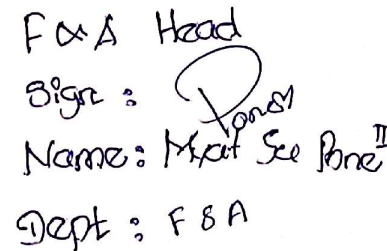 F & A Head
Sign :
Name: Myat Su Pone II
Dept : F & A